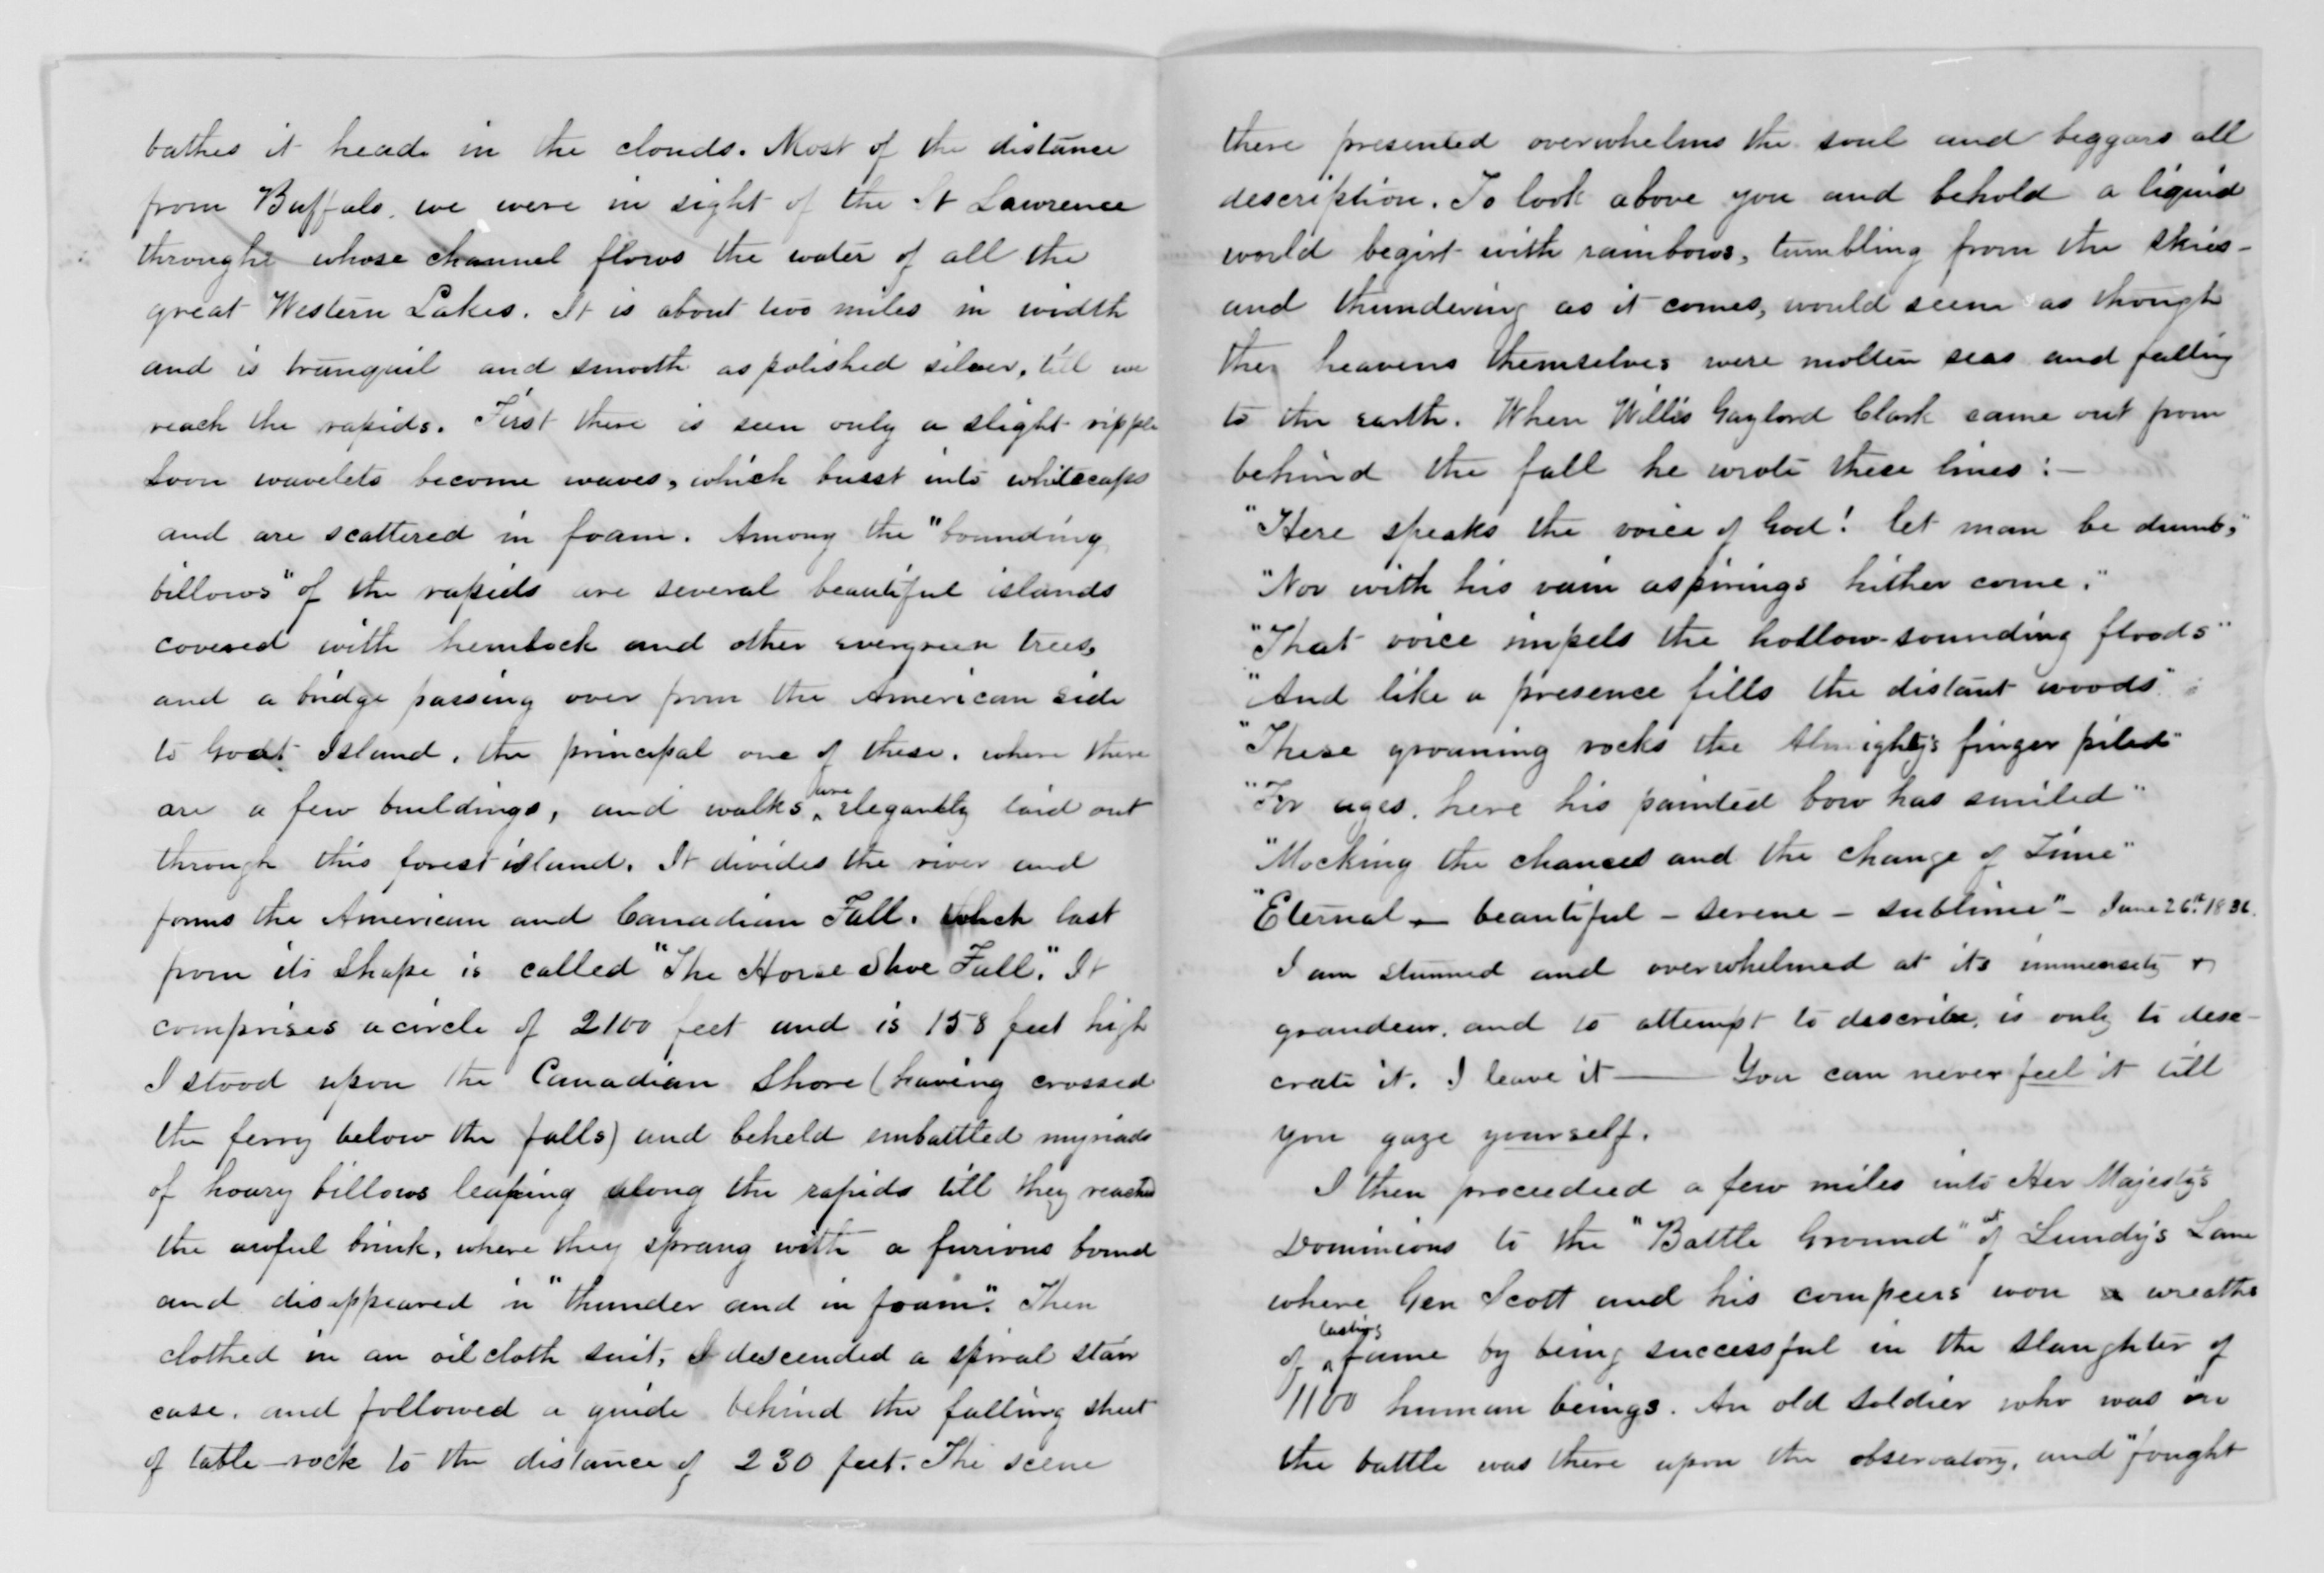 bathes it heads in the clouds. Most of the distance
from Buffalo, we were in sight of the St Lawrence
throughe whose channel flows the water of all the
great Western Lakes. It is about two miles in width
and is tranquil and smooth as polished silver, till we
reach the rapids. First there is seen only a slight ripple
soon wavelets become waves, which burst into whitecaps
and are scattered in foam. Among the "bounding
billows" of the rapids are several beautiful islands
covered with hemlock and other evergreen trees,
and a bridge passing over from the American side
to Goat Island, the principal one of these, where there
are a few buildings, and walks are elegantly laid out
through this forest island. It divides the river and
forms the American and Canadian Fall. which last
from its shape is called "The Horse Shoe Fall." It
comprises a circle of 2100 feet and is 158 feet high
I stood upon the Canadian Shore (having crossed
the ferry below the falls) and beheld embattled myriads
of hoary billows leaping along the rapids till they reached
the awful brink, where they sprang with a furious bound
and disappeared in "thunder and in foam". Then
clothed in an oil cloth suit, I descended a spiral stair
case, and followed a guide behind the falling sheet
of table-rock to the distance of 230 feet. The scene
there presented overwhelms the soul and beggars all
description. To look above you and behold a liquid
world begirt with rainbows, tumbling from the skies-
and thundering as it comes, would seem as though
the heavens themselves were molten seas and falling
to the earth. When Willis Gaylord Clark came out from
behind the fall he wrote these lines:—
"Here speaks the voice of God! let man be dumb,"
"Nor with his vain aspirings hither come."
"That voice impels the hollow-sounding floods"
"And like a presence fills the distant woods"
"These groaning rocks the Almighty's finger piled"
"For ages, here his painted bow has smiled"
"Mocking the chances and the change of Time"
"Eternal — beautiful — serene — sublime" — June 26th 1836.
I am stunned and overwhelmed at its immensity &
grandeur, and to attempt to describe, is only to dese-
crate it. I leave it —— You can never feel it till
you gaze yourself.
I then proceeded a few miles into Her Majesty's
Dominions to the "Battle Ground" at of Lundy's Lane
where Gen Scott and his compeers won a wreathe
of lasting fame by being successful in the slaughter of
1100 human beings. An old soldier who was in
the battle was there upon the observatory, and "fought